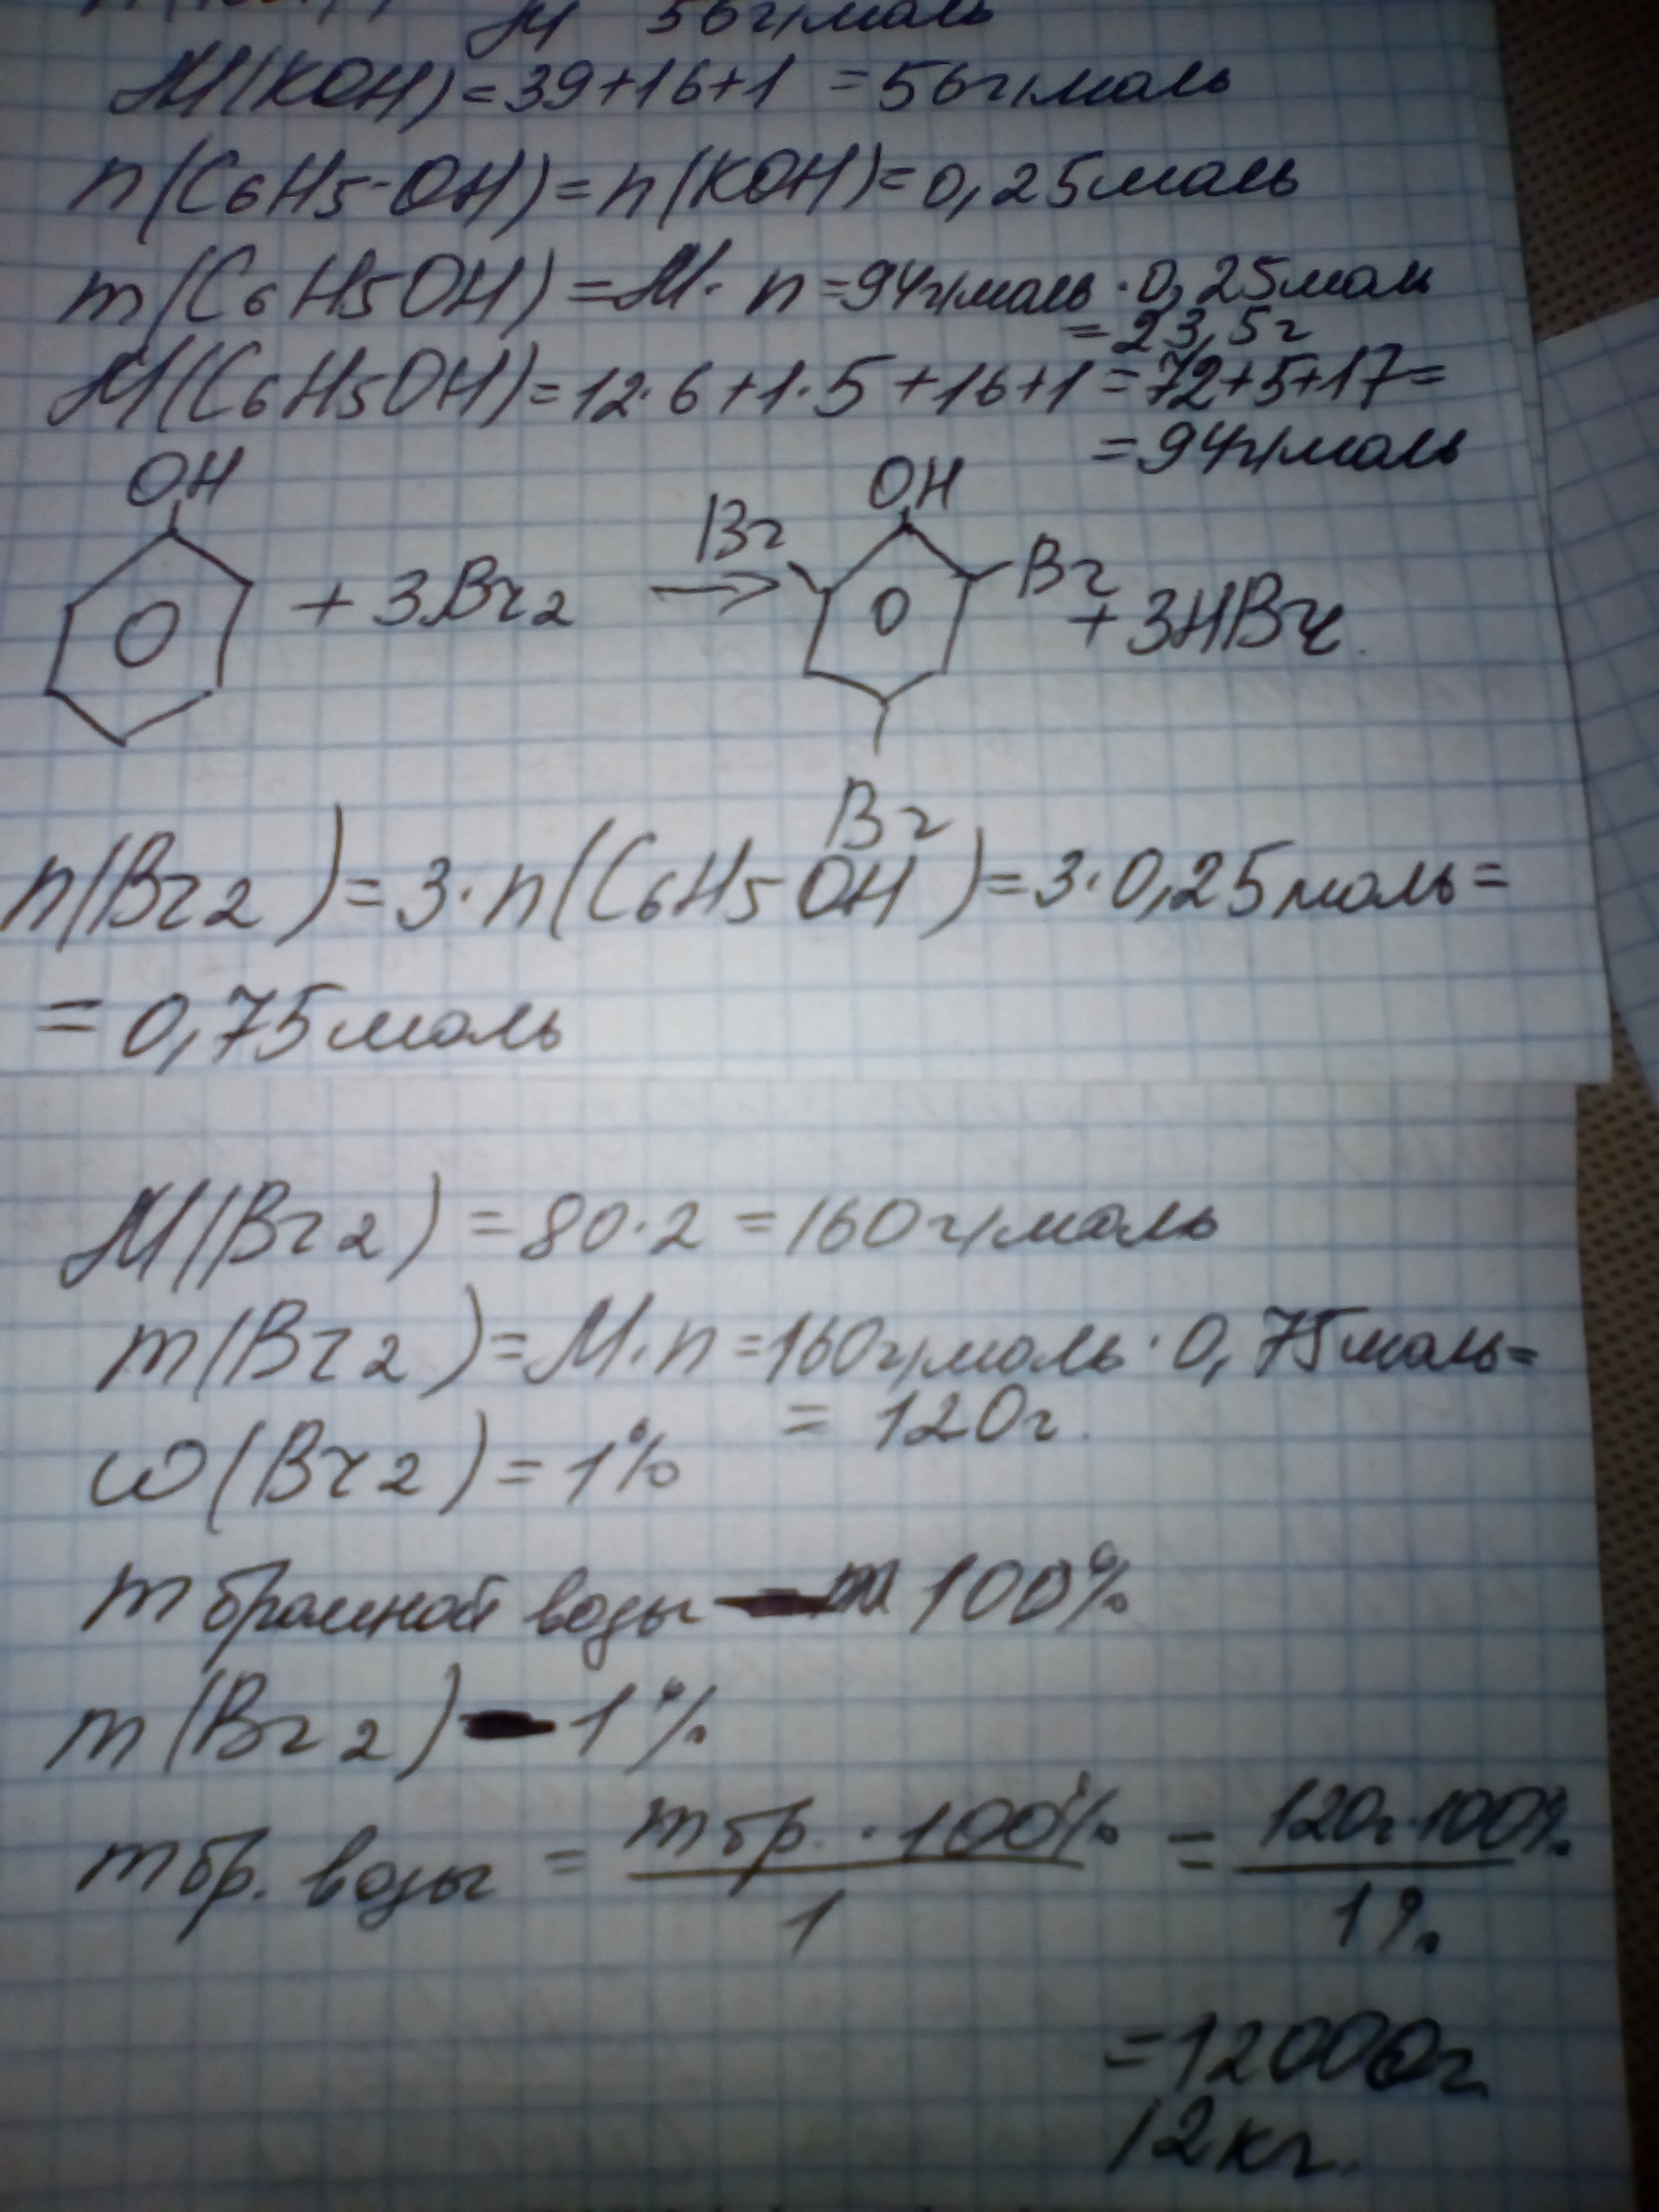 M 56г/моль
M(KOH)=39+16+1=56г/моль
n(C6H5-OH)=n(KOH)=0,25моль
m(C6H5OH)=M·n=94г/моль·0,25моль
=23,5г
M(C6H5OH)=12·6+1·5+16+1=72+5+17=
=94г/моль
OH OH
Br Br
+3Br2 → +3HBr.
Br
n(Br2)=3·n(C6H5OH)=3·0,25моль=
=0,75моль
M(Br2)=80·2=160г/моль
m(Br2)=M·n=160г/моль·0,75моль=
=120г.
ω(Br2)=1%
m бромной воды - 100%
m(Br2)-1%
m бр. воды = m бр. ·100% / 1 = 120г·100% / 1%
=12000г
12кг.